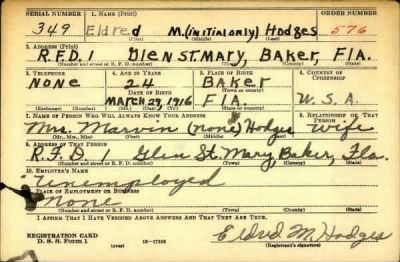 SERIAL NUMBER 1. NAME (Print) ORDER NUMBER
349 Eldred M. (initial only) Hodges 576
(First) (Middle) (Last)
2. ADDRESS (Print)
R.F.D. 1 Glen St. Mary, Baker, Fla.
(Number and street or R. F. D. number) (Town) (County) (State)
3. TELEPHONE 4. AGE IN YEARS 5. PLACE OF BIRTH 6. COUNTRY OF CITIZENSHIP
NONE 24 Baker
DATE OF BIRTH (Town or county)
March 29, 1916 Fla. U.S.A.
(Exchange) (No.) (Mo.) (Day) (Yr.) (State or country)
7. NAME OF PERSON WHO WILL ALWAYS KNOW YOUR ADDRESS 8. RELATIONSHIP OF THAT PERSON
Mrs. Marvin (none) Hodges Wife
(Mr., Mrs., Miss) (First) (Middle) (Last)
9. ADDRESS OF THAT PERSON
R.F.D. Glen St. Mary, Baker, Fla.
(Number and street or R. F. D. number) (Town) (County) (State)
10. EMPLOYER'S NAME
Unemployed
11. PLACE OF EMPLOYMENT OR BUSINESS
None
(Number and street or R. F. D. number) (Town) (County) (State)
I AFFIRM THAT I HAVE VERIFIED ABOVE ANSWERS AND THAT THEY ARE TRUE.
REGISTRATION CARD
D. S. S. Form 1 (over) 16—17105 Eldred M. Hodges
(Registrant's signature)